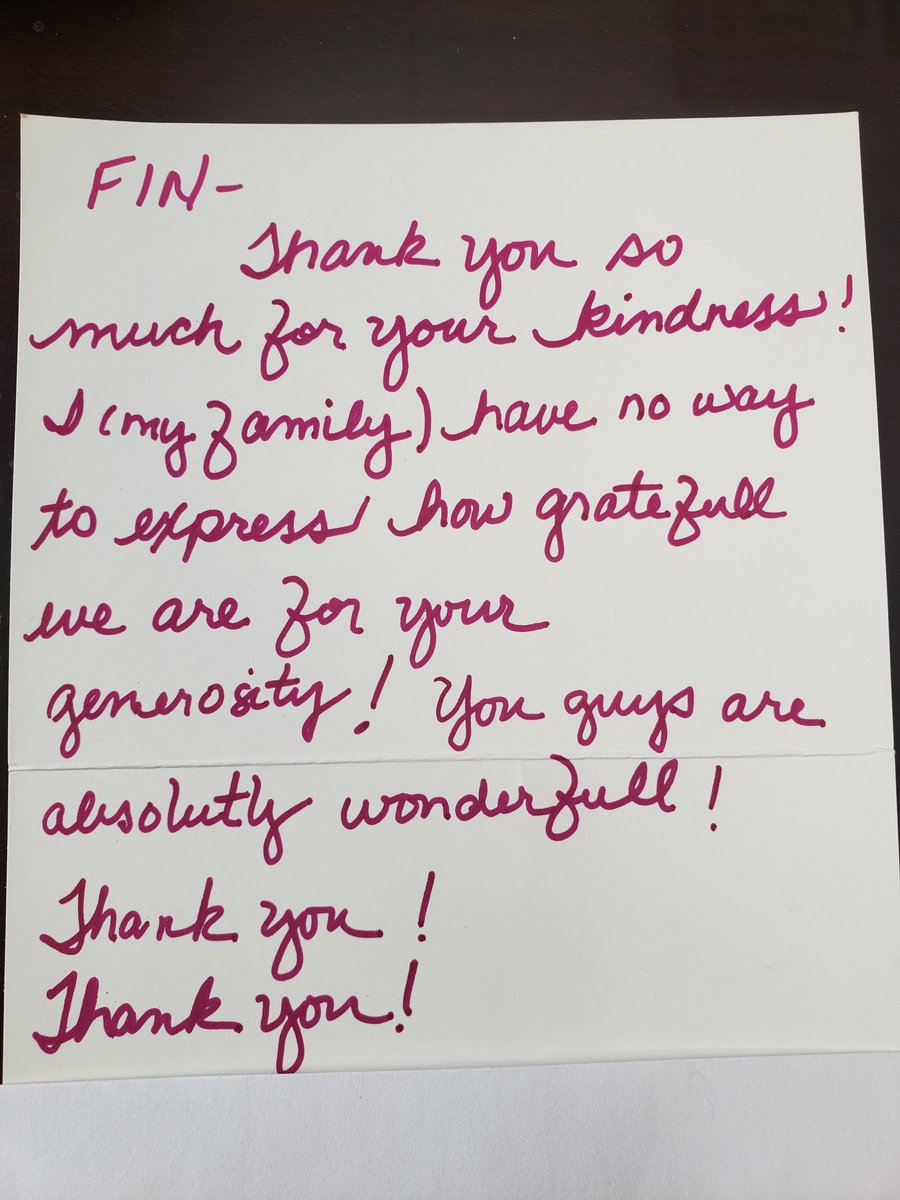 FIN-
Thank you so
much for your kindness!
I (my family) have no way
to express how gratefull
we are for your
generosity! You guys are
absolutly wonderfull!
Thank you!
Thank you!